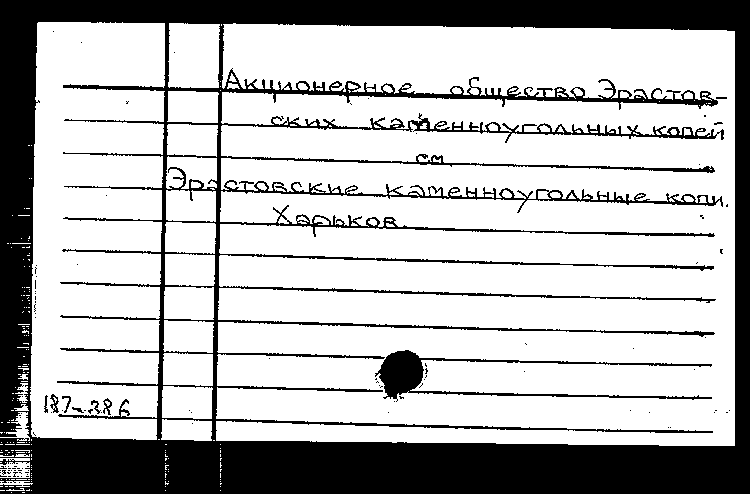 Акционерное общество Эрастов-
ских каменноугольных копей
см.
Эрастовские каменноугольные копи.
Харьков.
187-386